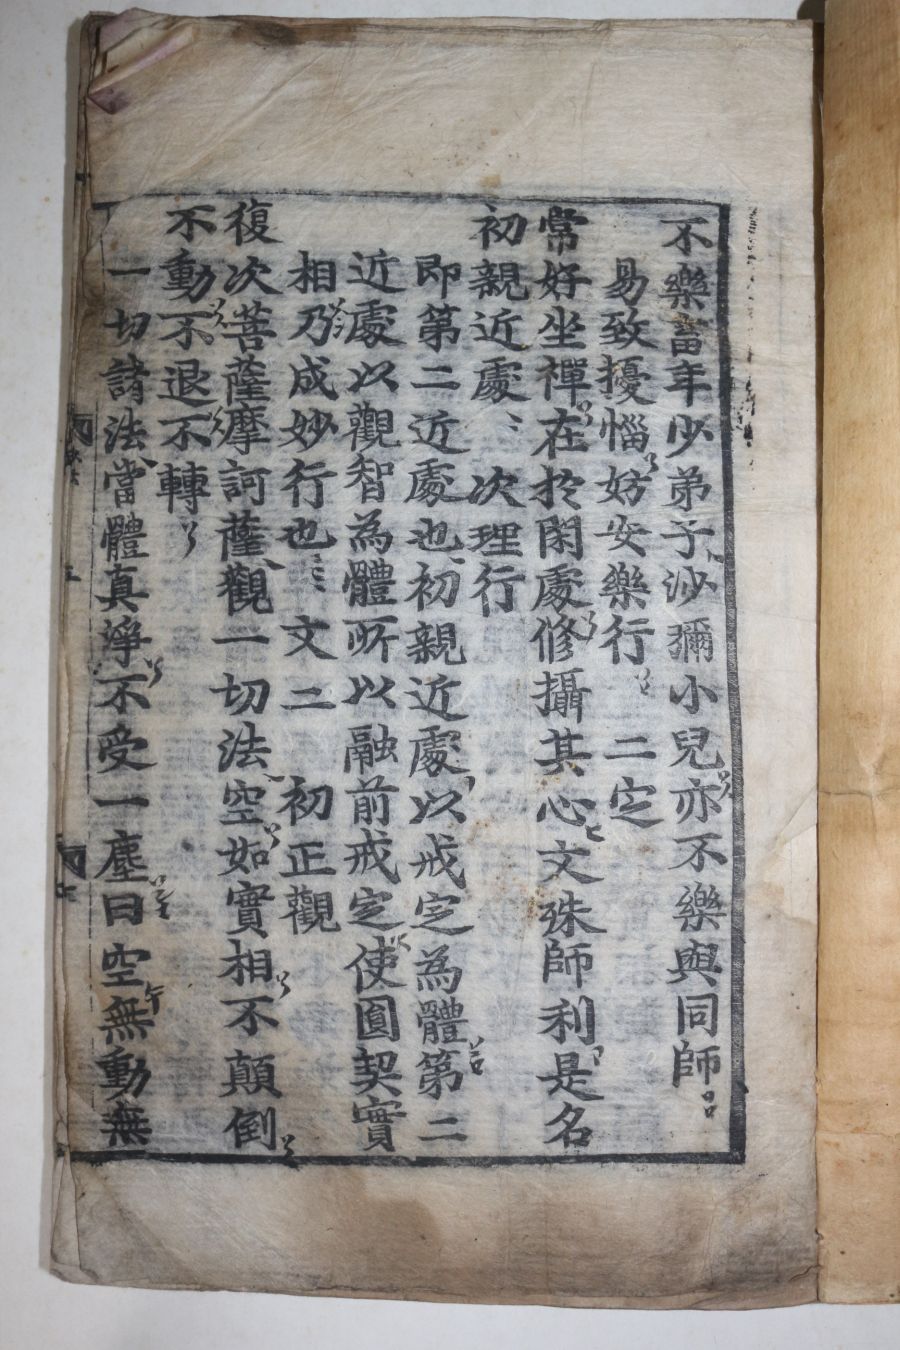 不樂畜年少弟子沙彌小兒亦不樂與同師
易致擾惱妨安樂行 二定
常好坐禪在於閑處修攝其心文殊師利是名
初親近處 次理行
即第二近處也初親近處以戒定為體第二
近處以觀智為體所以融前戒定使圓契實
相乃成妙行也 文二 初正觀
復次菩薩摩訶薩觀一切法空如實相不顛倒
不動不退不轉
一切諸法當體真淨不受一塵曰空無動無